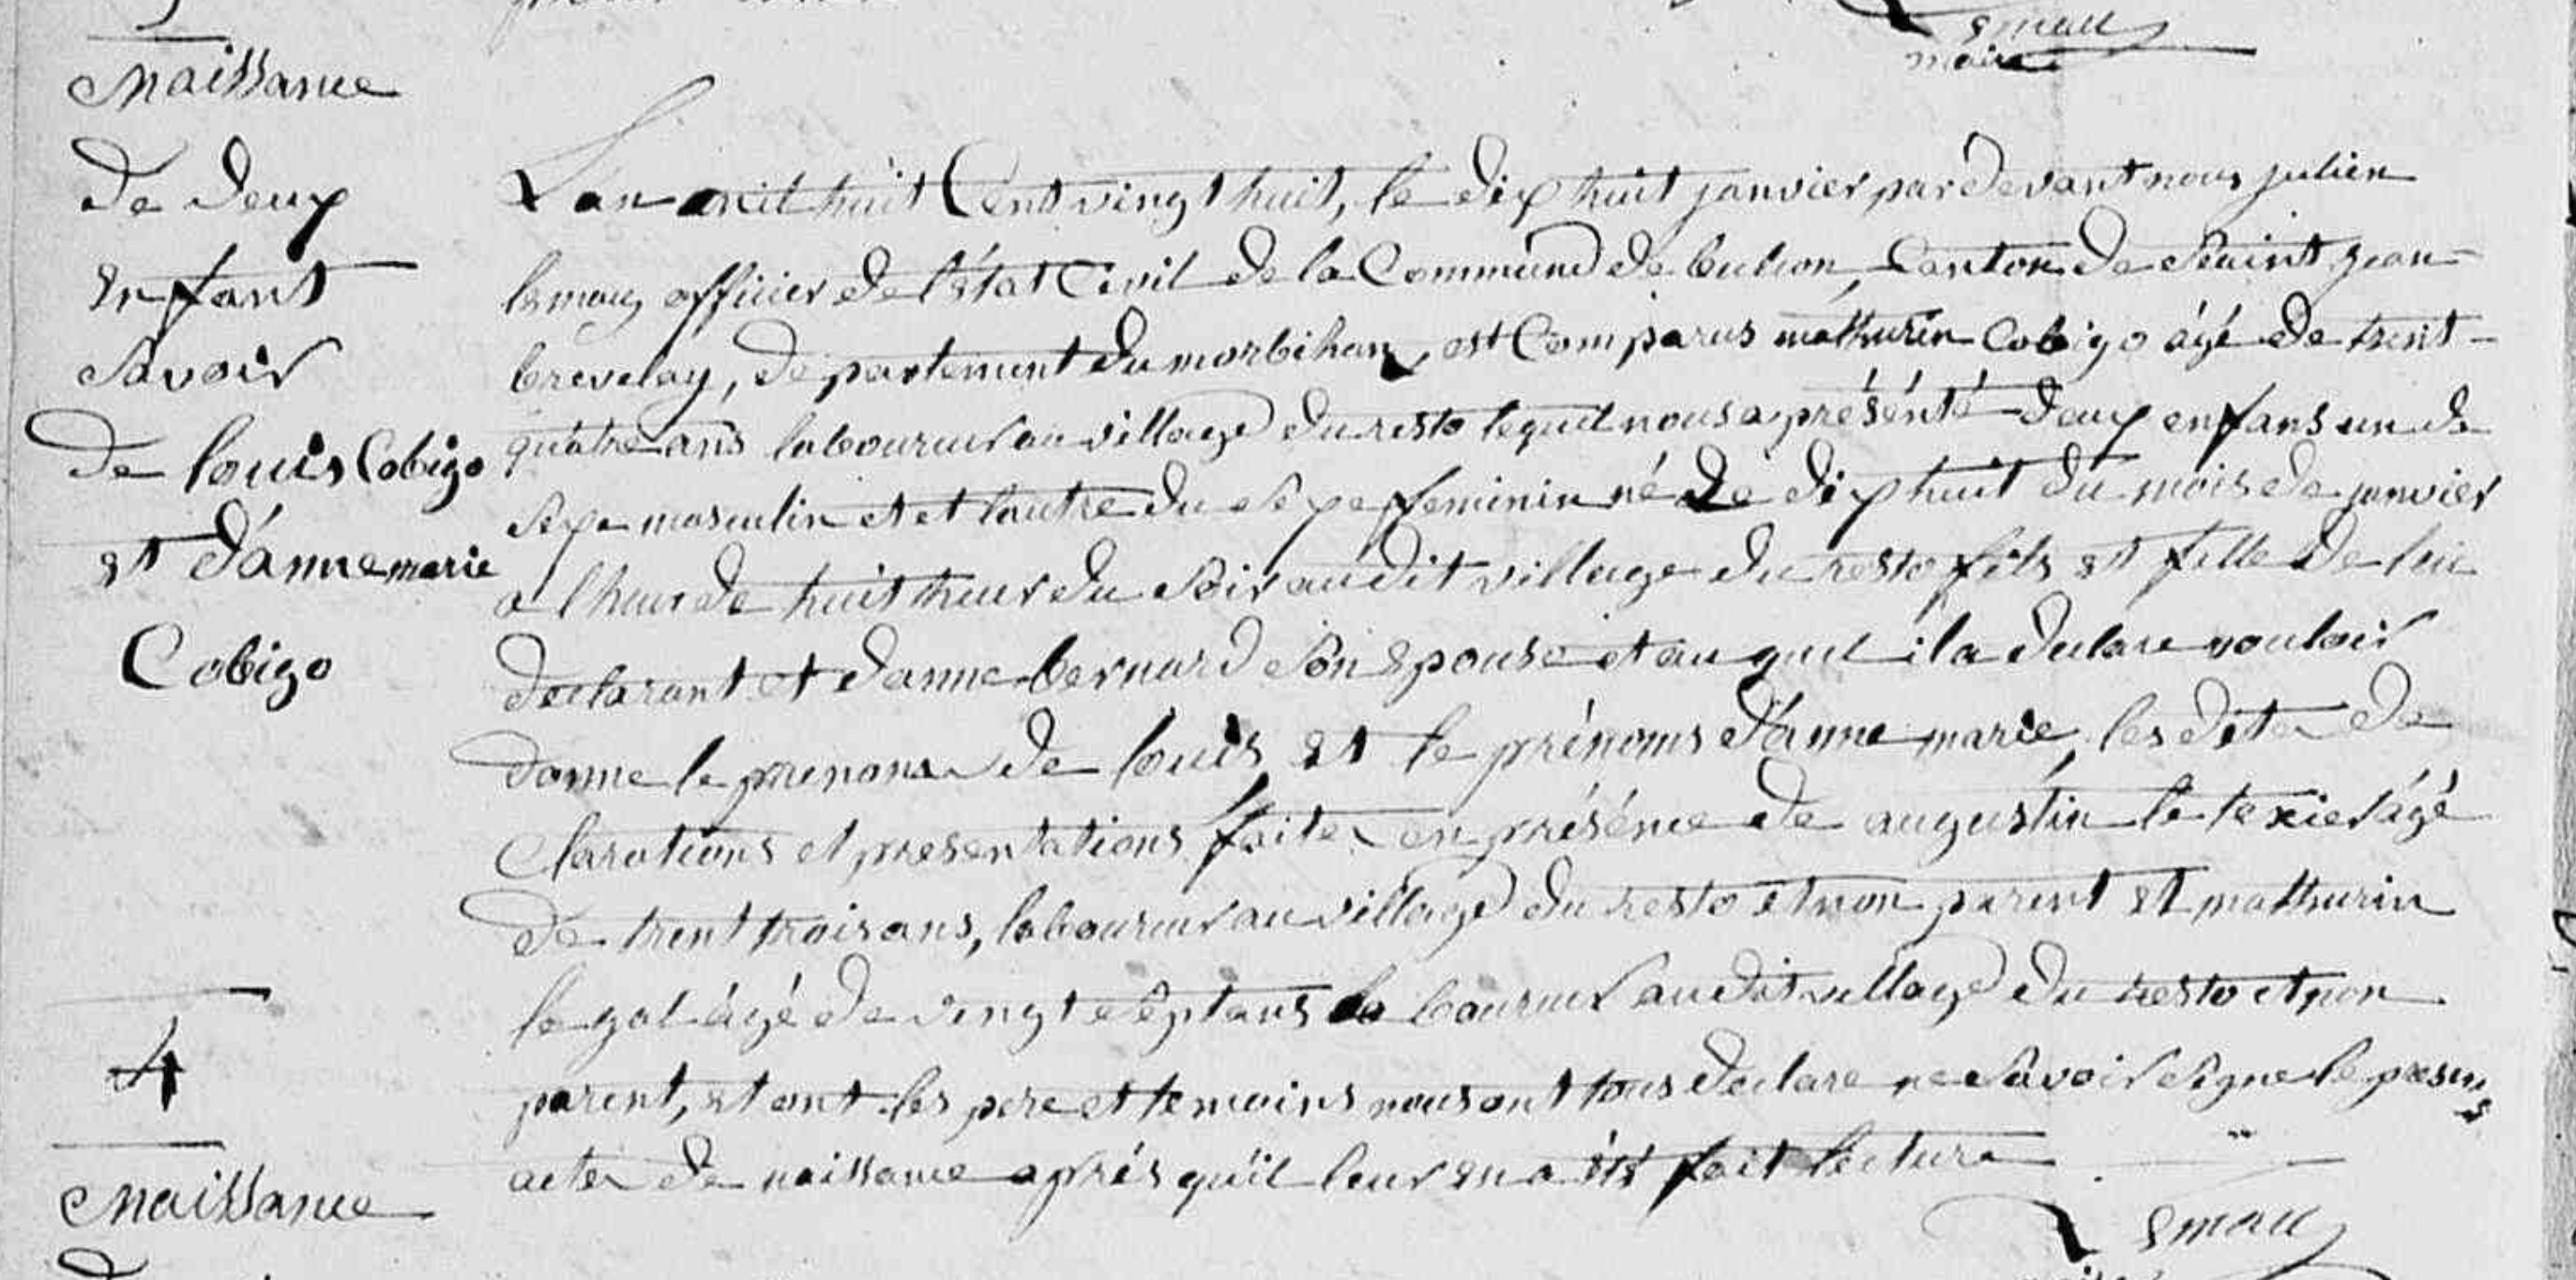 Emau
maire
Naissance
De Deux
Enfant
Savoir
De louis Cobigo
et d'anne marie
Cobigo
L'an mil huit Cent vingt huit, le dix huit janvier par devant nous julien
lemau officier De l'état Civil de la Commune De bubion, Canton De Saint jean
brevelay, De partement Du morbihan, est Comparus mathurin Cobigo âgé De trent-
quatre ans laboureur au village Du resto lequel nous a présénté Deux enfans un de
sexe masculin et et l'autre Du sexe feminin né Le Dix huit Du mois De janvier
a l'heur de huit heur Du Soir audit village Du resto fils et fille De lui
Declarant et D'anne bernard Son Epouse et au quel il a Declare vouloir
Donne le prenoms De louis et le prénoms d'anne marie, les Dites De
Clarations et presentations faites en présénce De augustin le texier âgé
De trent trois ans, laboureur au village Du resto et non parent et mathurin
le gal âgé De vingt Septans la boureur audit village Du resto et non
parent, et ont les pere et temoins nous ont tous Declare ne Savoir Signe le presens
actes De naissance aprés qu'il leur en a été fait lecture
Emau
4
Naissance